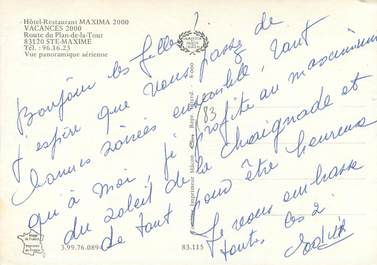 Hôtel-Restaurant MAXIMA 2000
VACANCES 2000
Route du Plan-de-la-Tour
83120 STE-MAXIME
Tél. : 96.16.23
Vue panoramique aérienne
Bonjour les filles !
J'espère que vous passez de
bonnes soirées ensemble, tant
qu'à moi, je profite au maximum
du soleil de la baignade et
de tout pour être heureux
Je vous embrasse
toutes les 2.
83
3.99.76.089
83.115